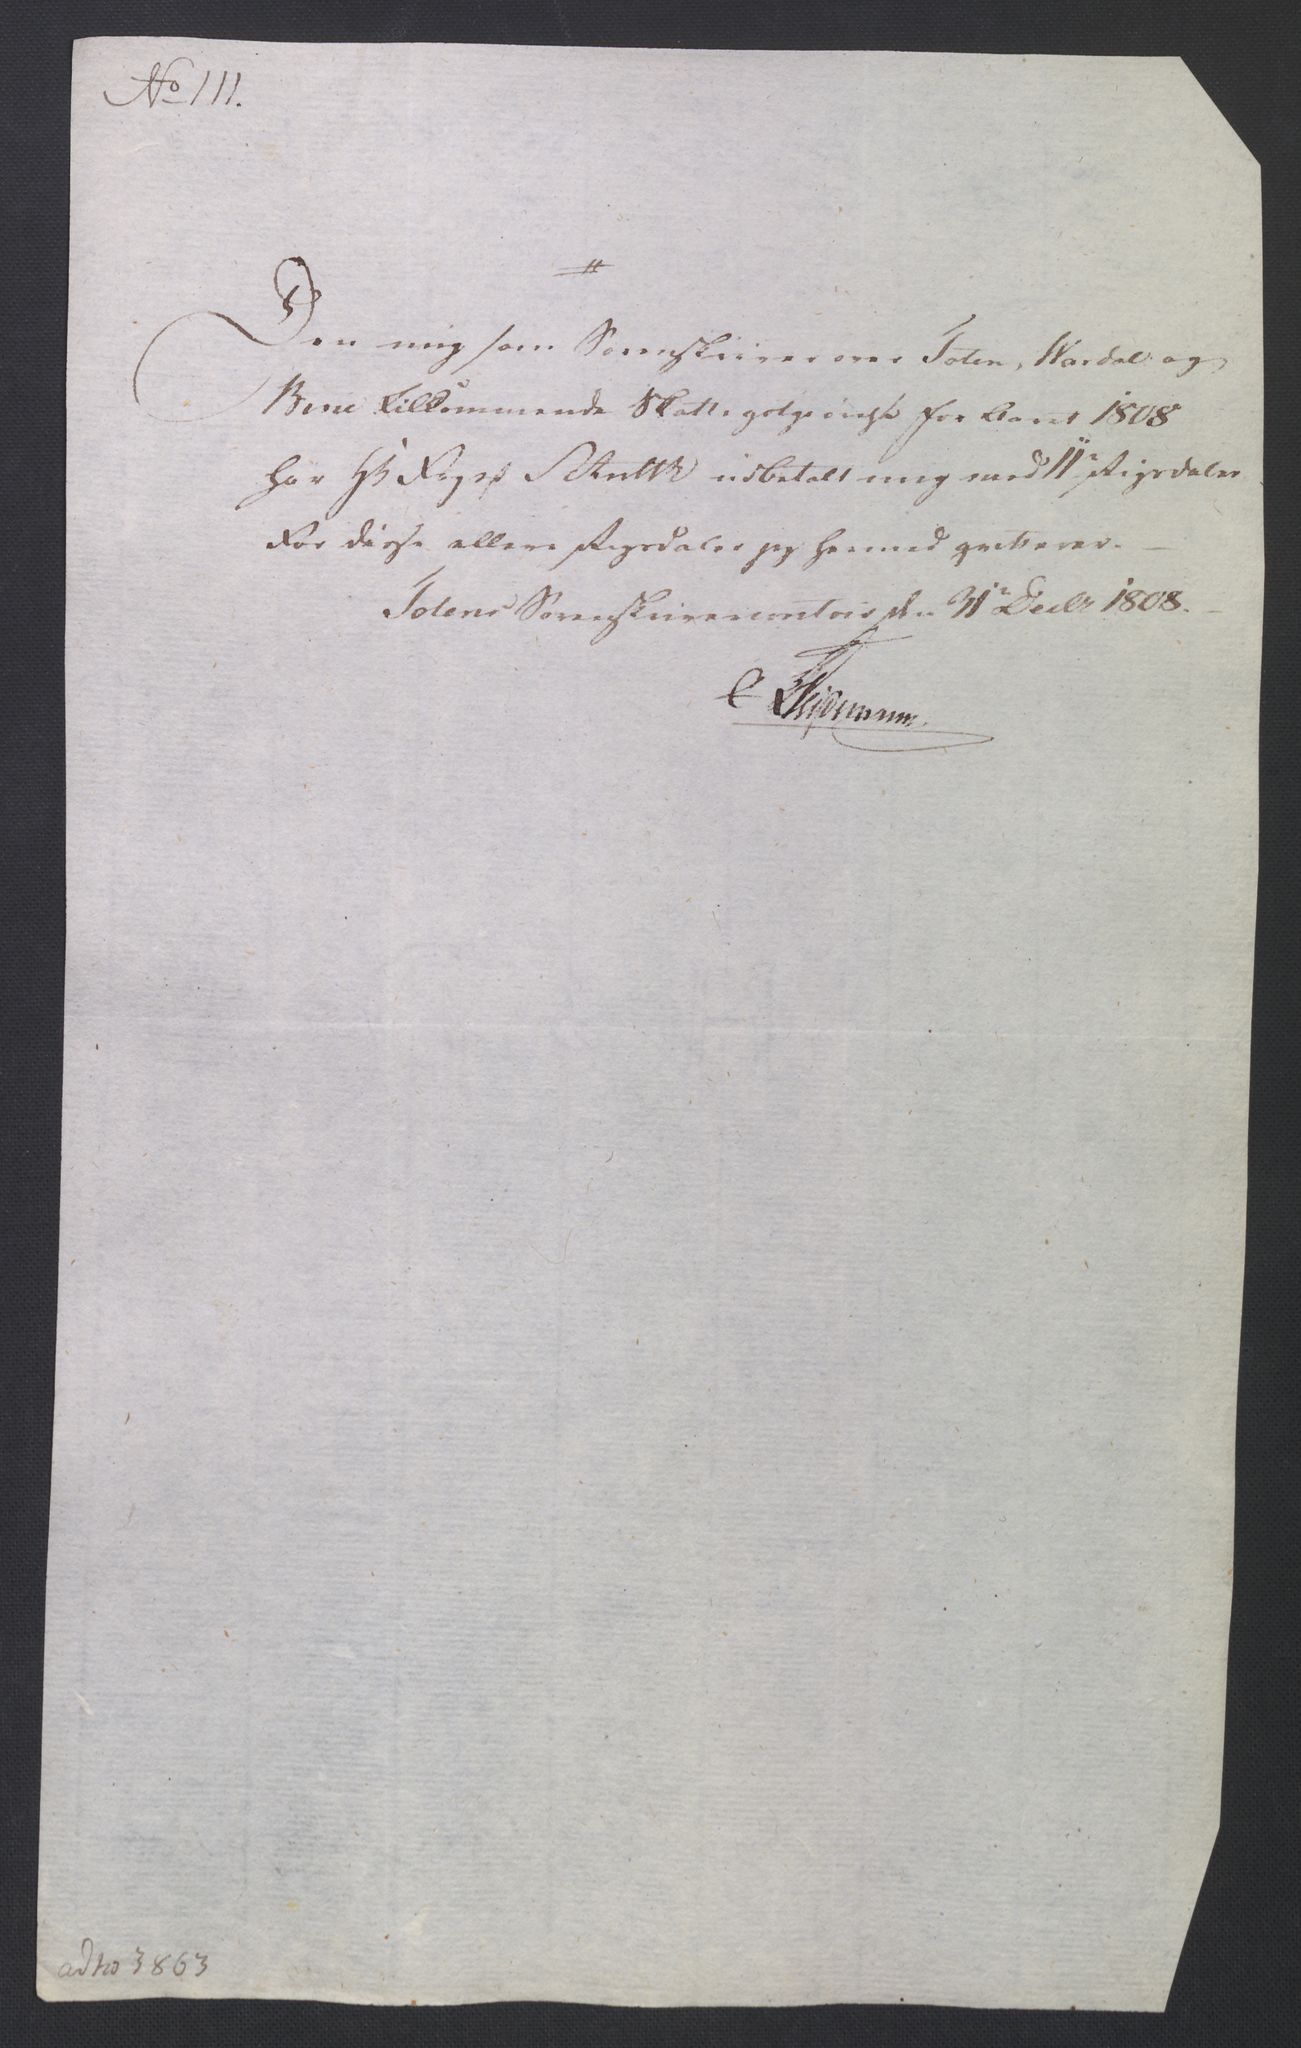 No 111.
Den mig som Sorenskriver over Toten, Wardal og
Birie tilkommende Skatte godtgiørelse for Aaret 1808
har Hr Foged udbetalt mig med 11 Rigsdaler
For disse elleve Rigsdaler jeg hermed qvitterer.
Totens Sorenskrivercontoir den 31te Decbr 1808.
ad no 3863